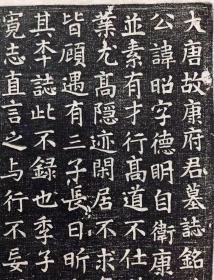 大唐故康府君墓誌銘
公諱昭字德明自衛康
並素有才行高道不仕
業尤高隱迹閑居不求
皆顧遇有三子長曰昕
其本誌此不録也季子
寬志直言之与行不妄